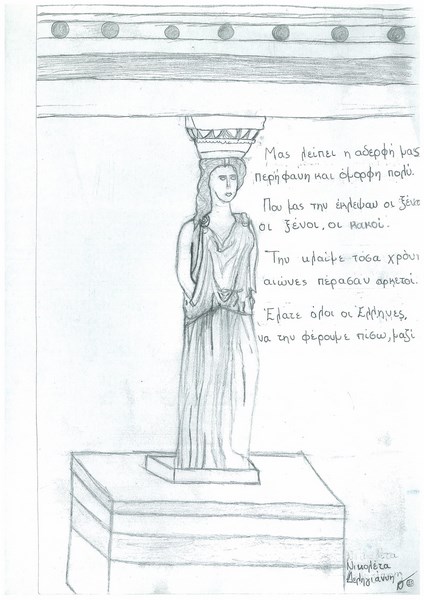 Μας λείπει η αδερφή μας
περήφανη και όμορφη πολύ.
Που μας την έκλεψαν οι ξένοι
οι ξένοι, οι κακοί.
Την κλαίμε τόσα χρόνι
αιώνες πέρασαν αρκετοί.
Ελάτε όλοι οι Έλληνες,
να την φέρουμε πίσω, μαζί
Νικολέτα
Δεληγιάννη